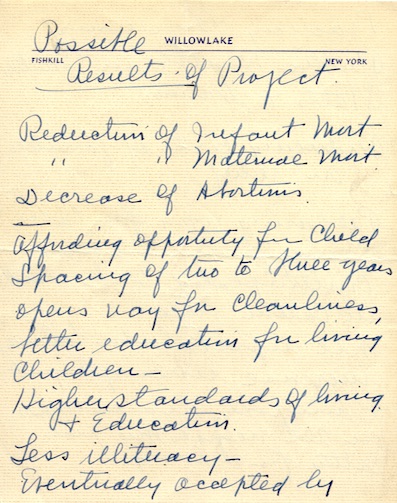 Possible
WILLOWLAKE
FISHKILL NEW YORK
Results of Project.
Reduction of Infant Mort
" " Maternal Mort
Decrease of Abortions.
Affording opportuty for Child
Spacing of two to three years
opens way for Cleanliness,
better education for living
Children —
Higher standards of living.
+ Education.
Less illiteracy —
Eventually accepted by